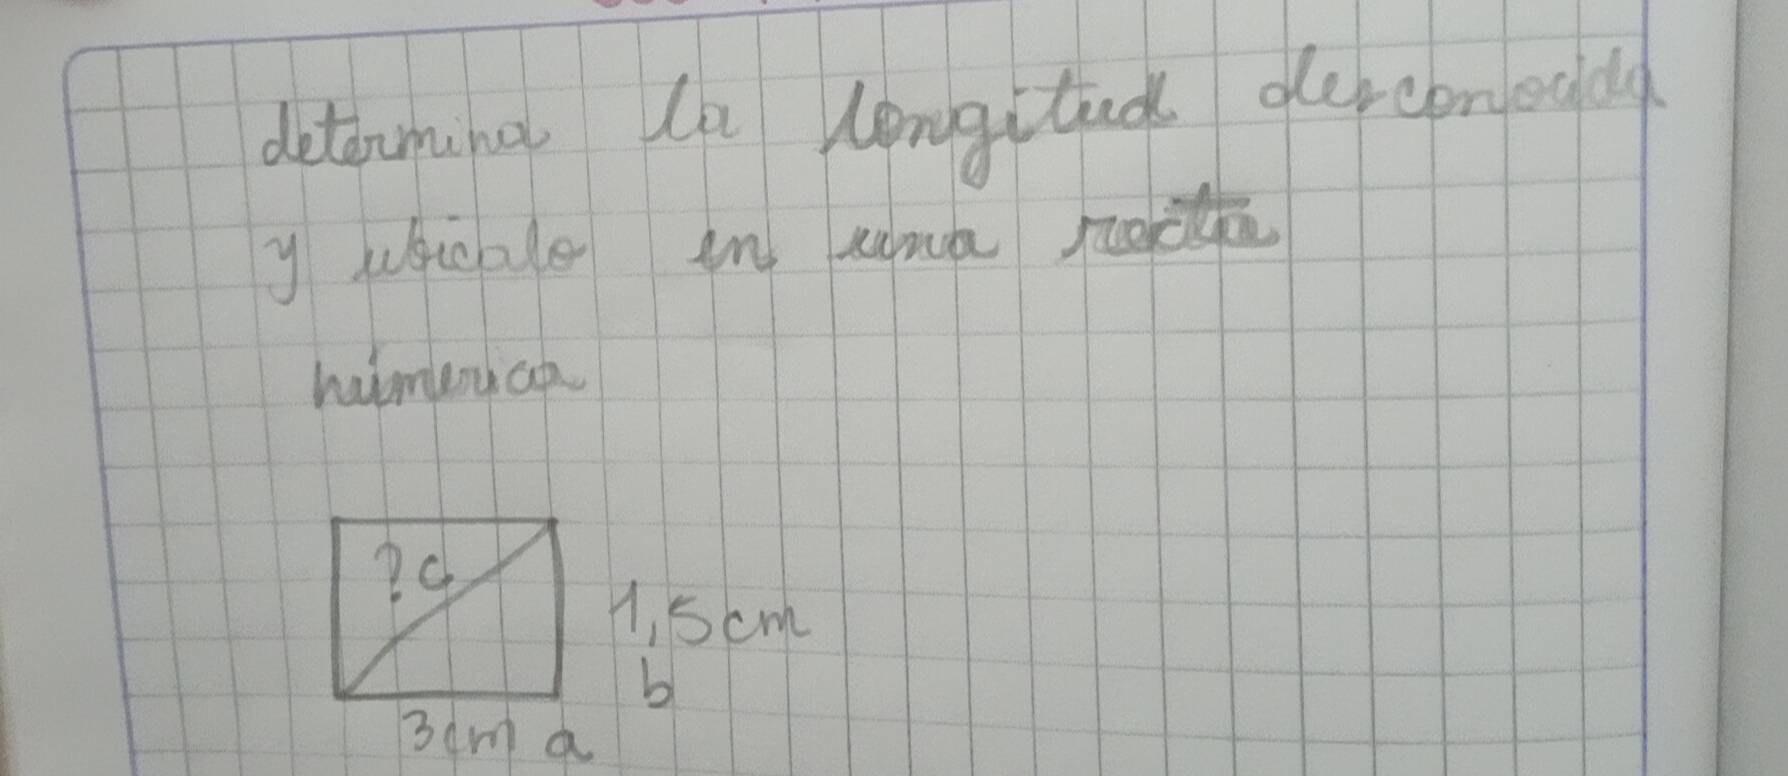 determina la longitud desconocida
y ubicalo en una recta
númerica
? c
1,5 cm
b
3 cm a